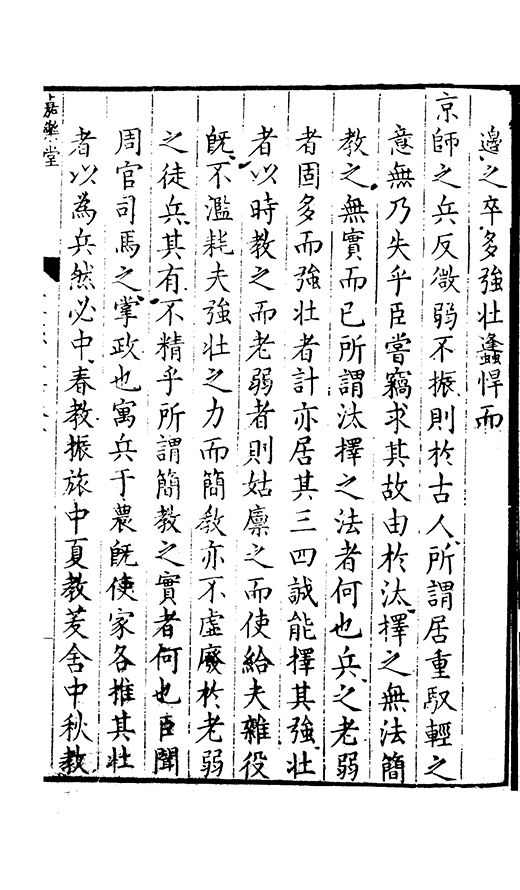 邊之卒多強壯蠭悍而
京師之兵反微弱不振則於古人所謂居重馭輕之
意無乃失乎臣嘗竊求其故由於汰擇之無法簡
教之無實而已所謂汰擇之法者何也兵之老弱
者固多而強壯者計亦居其三四誠能擇其強壯
者以時教之而老弱者則姑廪之而使給夫雜役
旣不濫耗夫強壯之力而簡教亦不虛廢於老弱
之徒兵其有不精乎所謂簡教之實者何也臣聞
周官司馬之掌政也寓兵于農旣使家各推其壯
者以為兵然必中春教振旅中夏教茇舍中秋教
嘉樂堂